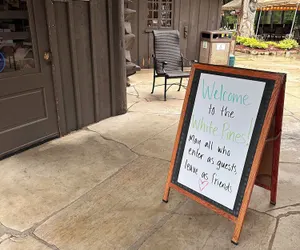 Welcome
to the
White Pines
May all who
enter as guests
leave as friends